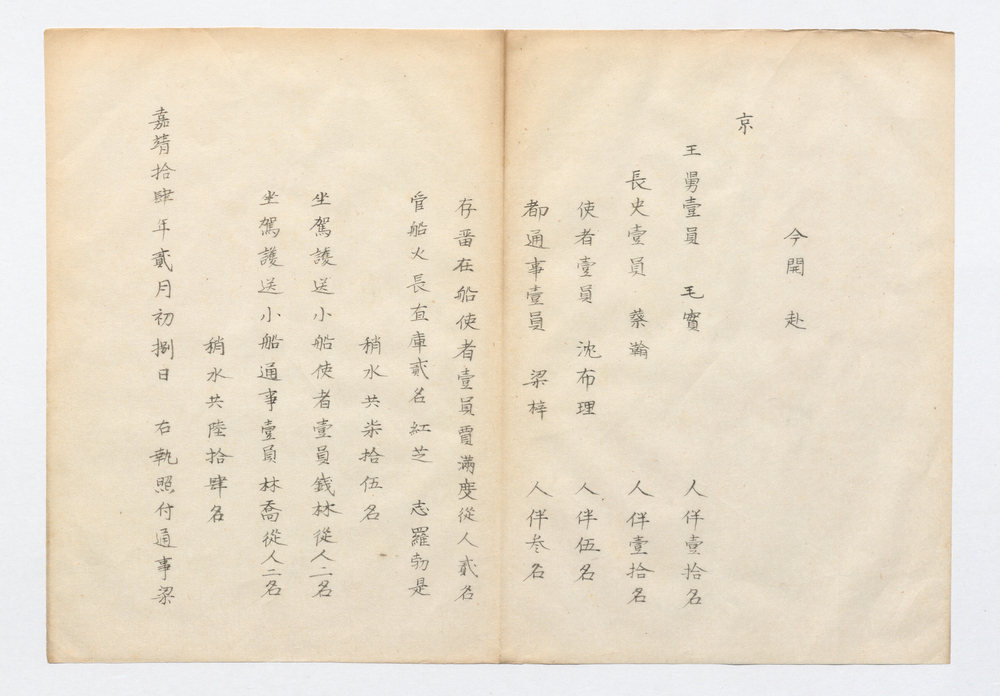 今開赴
京
王舅壹員 毛實 人伴壹拾名
長史壹員 蔡瀚 人伴壹拾名
使者壹員 沈布理 人伴伍名
都通事壹員 梁梓 人伴叁名
存畱在船使者壹員賈滿度從人貳名
管船火長直庫貳名紅芝 志羅勃是
稍水共柒拾伍名
坐駕護送小船使者壹員錢林從人二名
坐駕護送小船通事壹員林喬從人二名
稍水共陸拾肆名
嘉靖拾肆年貳月初捌日 右執照付通事梁